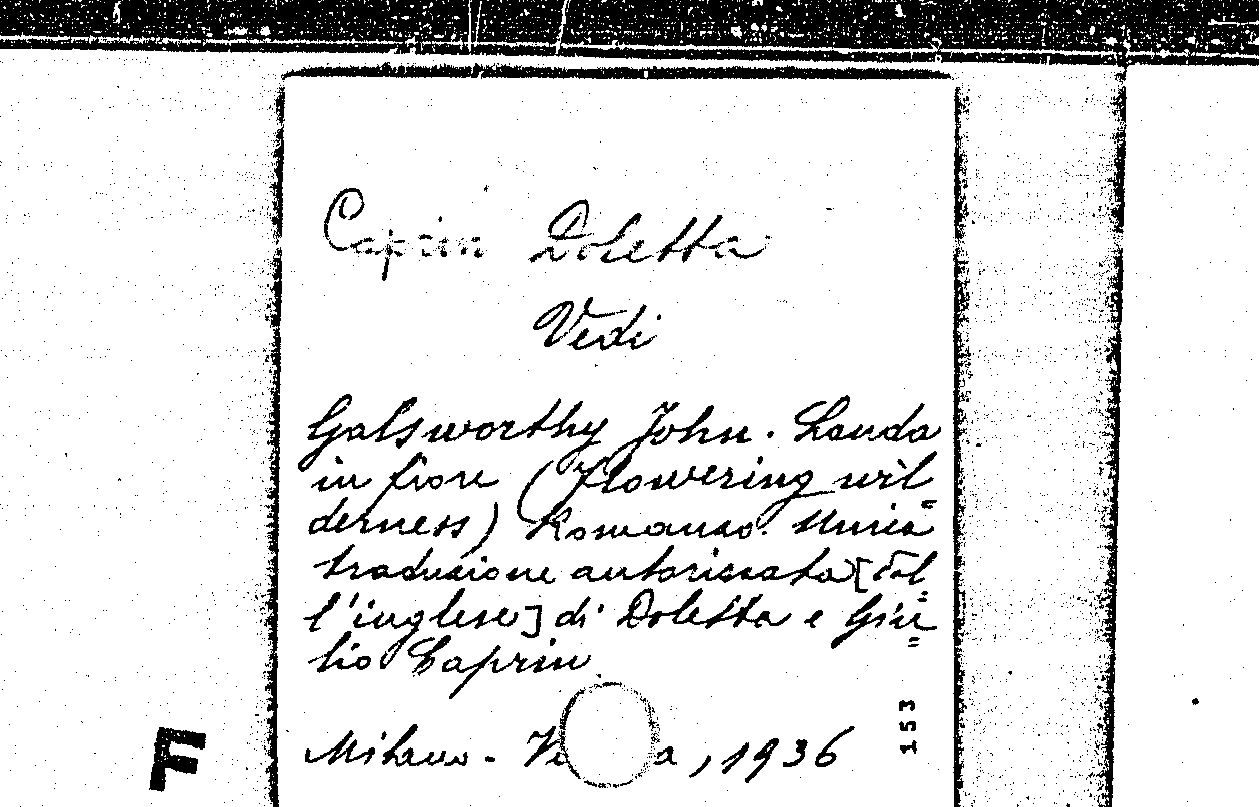 Caprin Doletta
Vedi
Galsworthy John. Landa
in fiore (Flowering wil=
derness) Romanzo. Unica
traduzione autorizzata [dal=
l'inglese] di Doletta e Giu=
lio Caprin
Milano - a, 1936
153
F